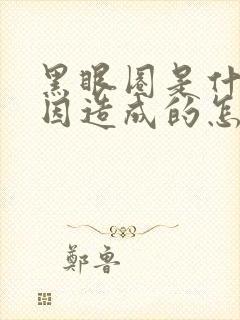 黑眼圈是什
因造成的怎
鄭魯